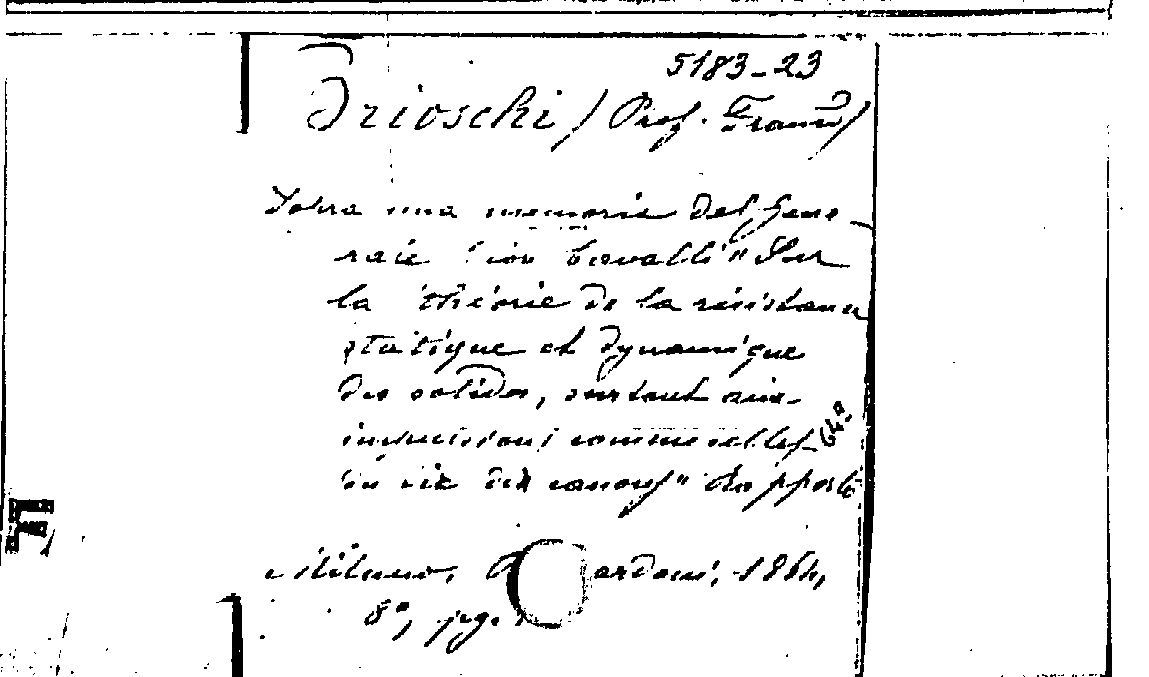 5183-23
Brioschi / Prof. Franc.º/
Sopra una memoria del Gene-
rale Cav. Cavalli "Sur
la théorie de la résistance
statique et dynamique
des solides, surtout aux
impulsions comme celles
du tir des canons" Rapporto
Milano, Bernardoni, 1864,
8º, pg.